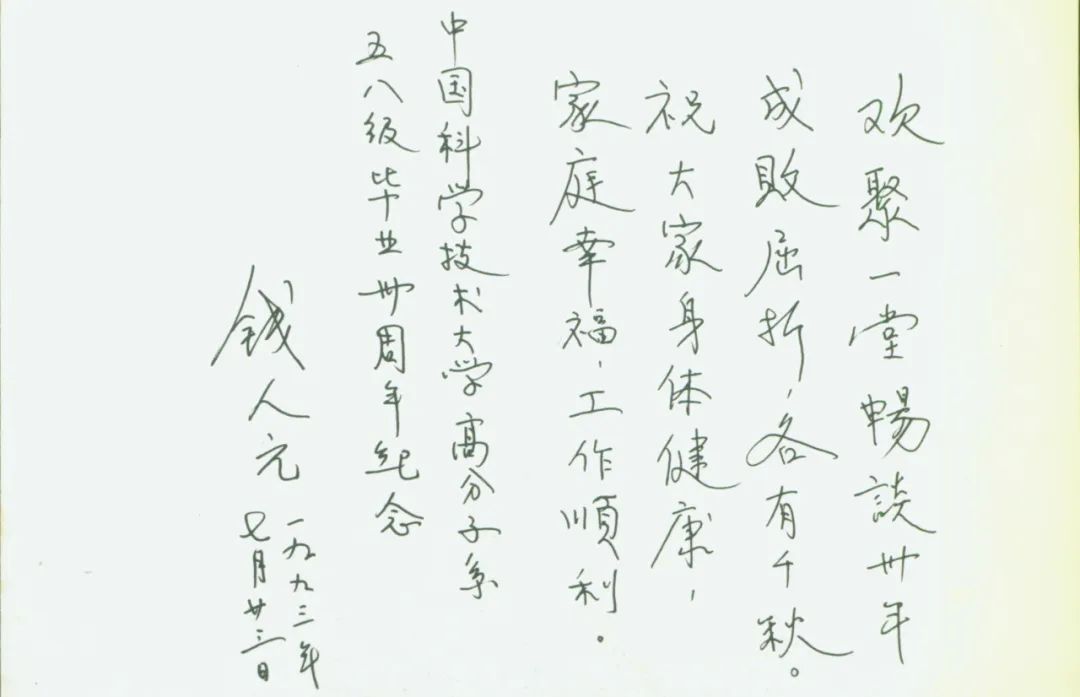 欢聚一堂暢談卅年
成敗屈折，各有千秋。
祝大家身体健康，
家庭幸福，工作順利。
中国科学技术大学高分子系
五八级毕业卅周年纪念
钱人元
一九九三年
七月廿三日